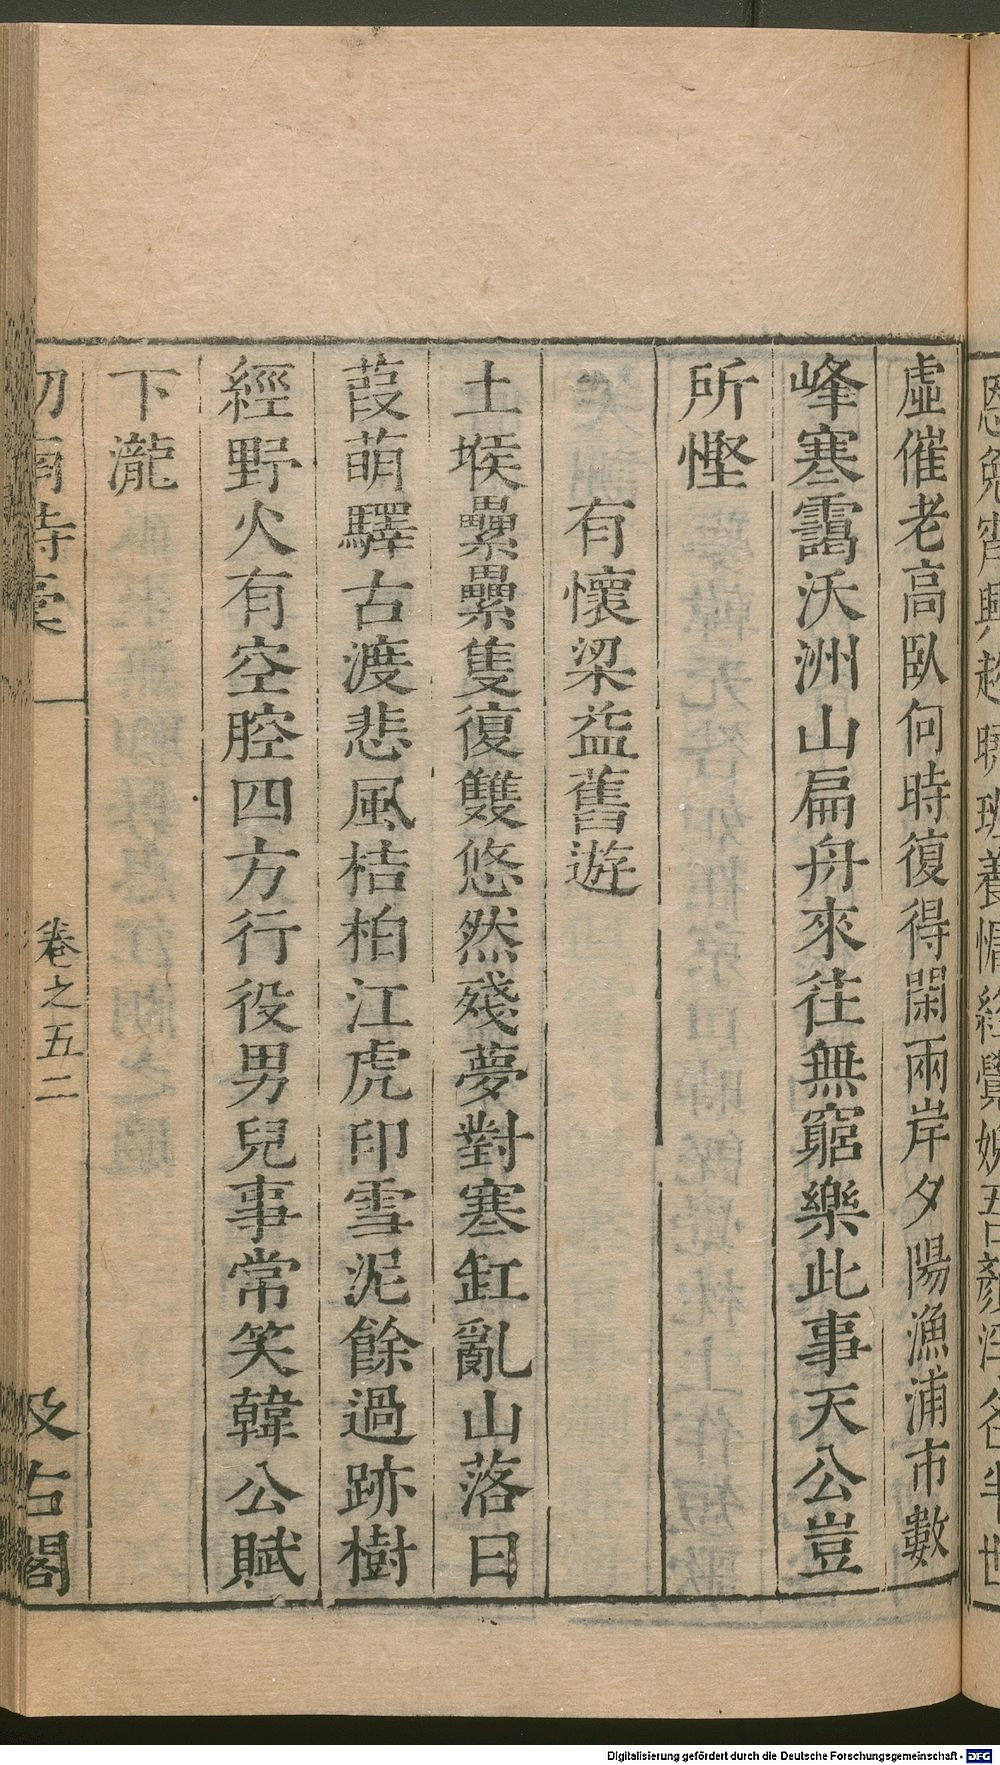 虛催老高臥何時復得閑兩岸夕陽漁浦市數
峰寒靄沃洲山扁舟來往無窮樂此事天公豈
所慳
有懷梁益舊遊
土堠纍纍隻復雙悠然殘夢對寒缸亂山落日
葭萌驛古渡悲風桔柏江虎印雪泥餘過跡樹
經野火有空腔四方行役男兒事常笑韓公賦
下瀧
卷之五二
汲古閣
Digitalisierung gefördert durch die Deutsche Forschungsgemeinschaft - DFG